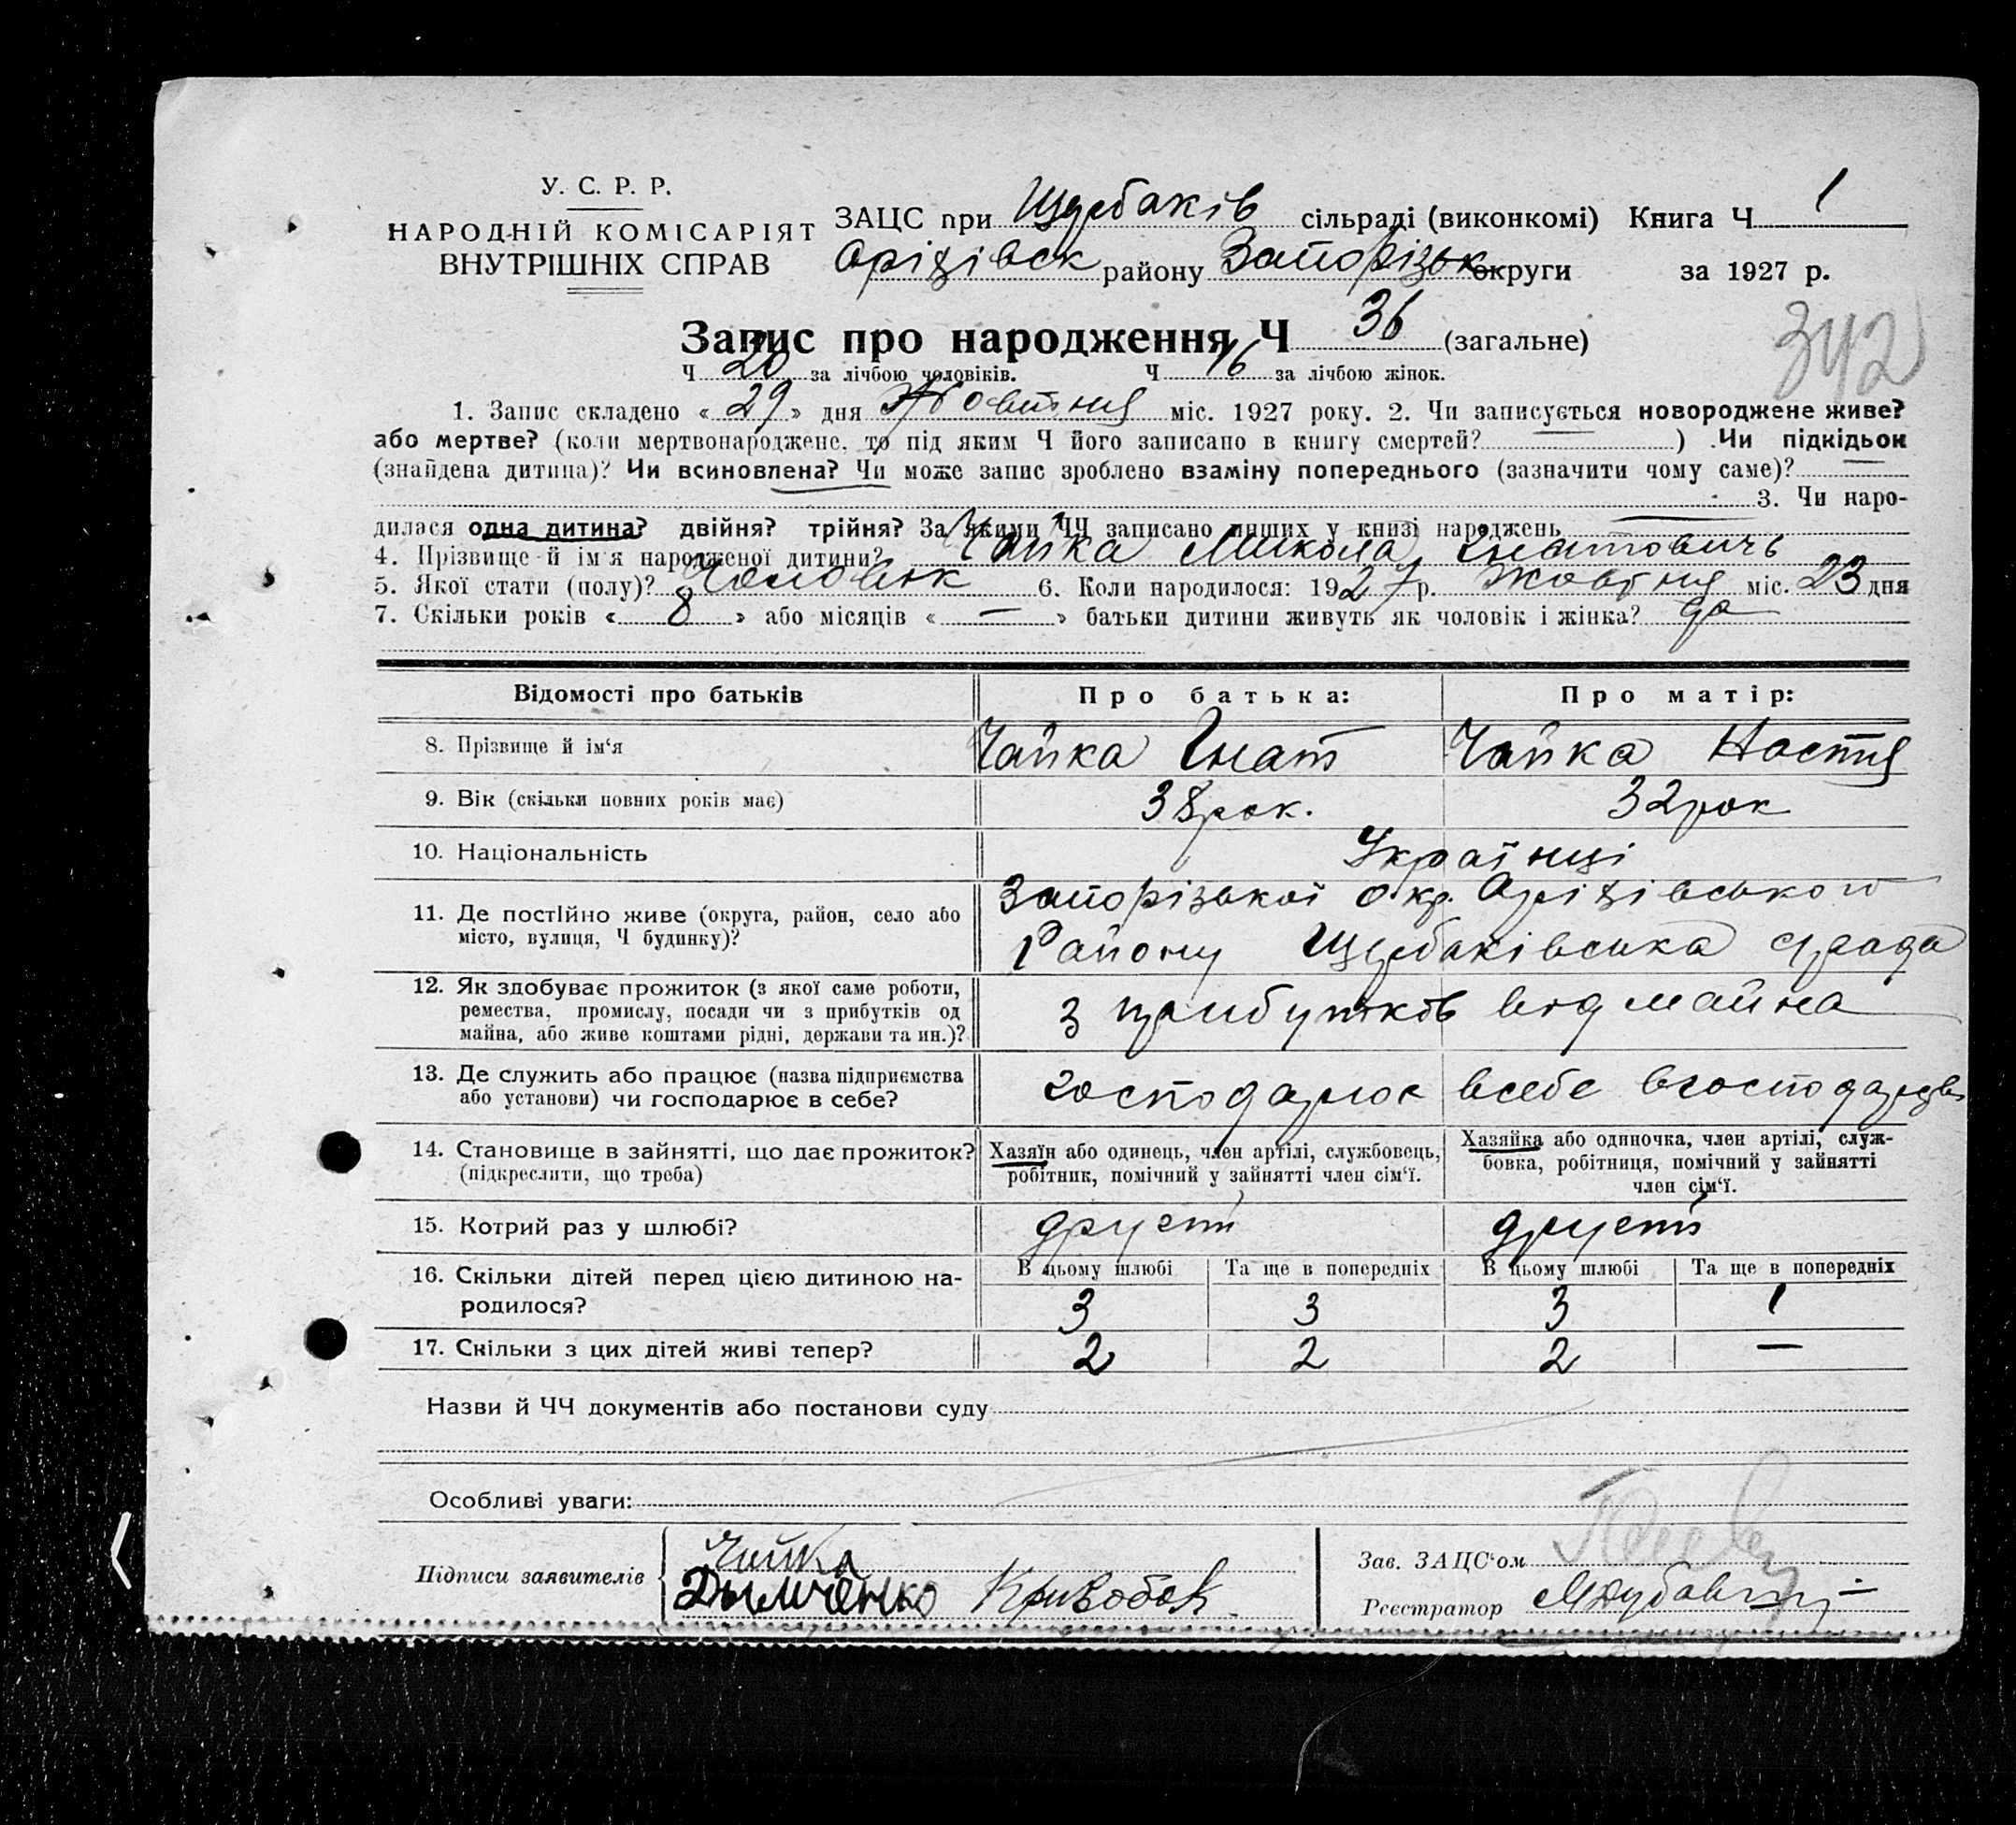 У. С. Р. Р.
НАРОДНІЙ КОМІСАРІЯТ
ВНУТРІШНІХ СПРАВ
ЗАЦС при Щербаків сільраді (виконкомі) Книга Ч 1
Оріхівск району Запорізьк округи за 1927 р.
342
Запис про народження Ч 36 (загальне)
Ч 20 за лічбою чоловіків. Ч 16 за лічбою жінок.
1. Запис складено « 29 » дня Жовтня міс. 1927 року. 2. Чи записується новороджене живе?
або мертве? (коли мертвонароджене, то під яким Ч його записано в книгу смертей? — ) Чи підкідьок
(знайдена дитина)? Чи всиновлена? Чи може запис зроблено взаміну попереднього (зазначити чому саме)?
3. Чи наро-
дилася одна дитина? двійня? трійня? За якими ЧЧ записано инших у книзі народжень
4. Прізвище й ім'я народженої дитини? Чайка Микола Гнатовичь
5. Якої стати (полу)? Чоловік 6. Коли народилося: 1927 р. Жовтня міс. 23 дня
7. Скільки років « 8 » або місяців « — » батьки дитини живуть як чоловік і жінка? да
Відомості про батьків Про батька: Про матір:
8. Прізвище й ім'я Чайка Гнат Чайка Настя
9. Вік (скільки повних років має) 38 рок. 32 рок
10. Національність Українці
11. Де постійно живе (округа, район, село або Запорізької окр. Оріхівського
місто, вулиця, Ч будинку)? Району Щербаківська с/рада
12. Як здобуває прожиток (з якої саме роботи,
ремества, промислу, посади чи з прибутків од з прибутків від майна
майна, або живе коштами рідні, держави та ин.)?
13. Де служить або працює (назва підприємства
або установи) чи господарює в себе? господарює всебе вгосподарстві
14. Становище в зайнятті, що дає прожиток? Хазяїн або одинець, член артілі, службовець, Хазяйка або одиночка, член артілі, служ-
(підкреслити, що треба) робітник, помічний у зайнятті член сім'ї. бовка, робітниця, помічний у зайнятті
член сім'ї.
15. Котрий раз у шлюбі?
16. Скільки дітей перед цією дитиною на- В цьому шлюбі Та ще в попередніх В цьому шлюбі Та ще в попередніх
родилося? 3 3 3 1
17. Скільки з цих дітей живі тепер? 2 2 2 —
Назви й ЧЧ документів або постанови суду
Особливі уваги:
Підписи заявителів Чайка
Дымченко Кривобок
Зав. ЗАЦС'ом
Реєстратор